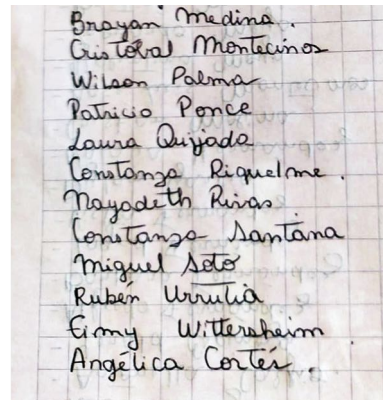 Brayan Medina.
Cristóbal Montecinos
Wilson Palma
Patricio Ponce
Laura Quijada
Constanza Riquelme.
Nayadeth Rivas
Constanza Santana
Miguel Soto
Rubén Urrutia
Eimy Wittersheim
Angélica Cortés.